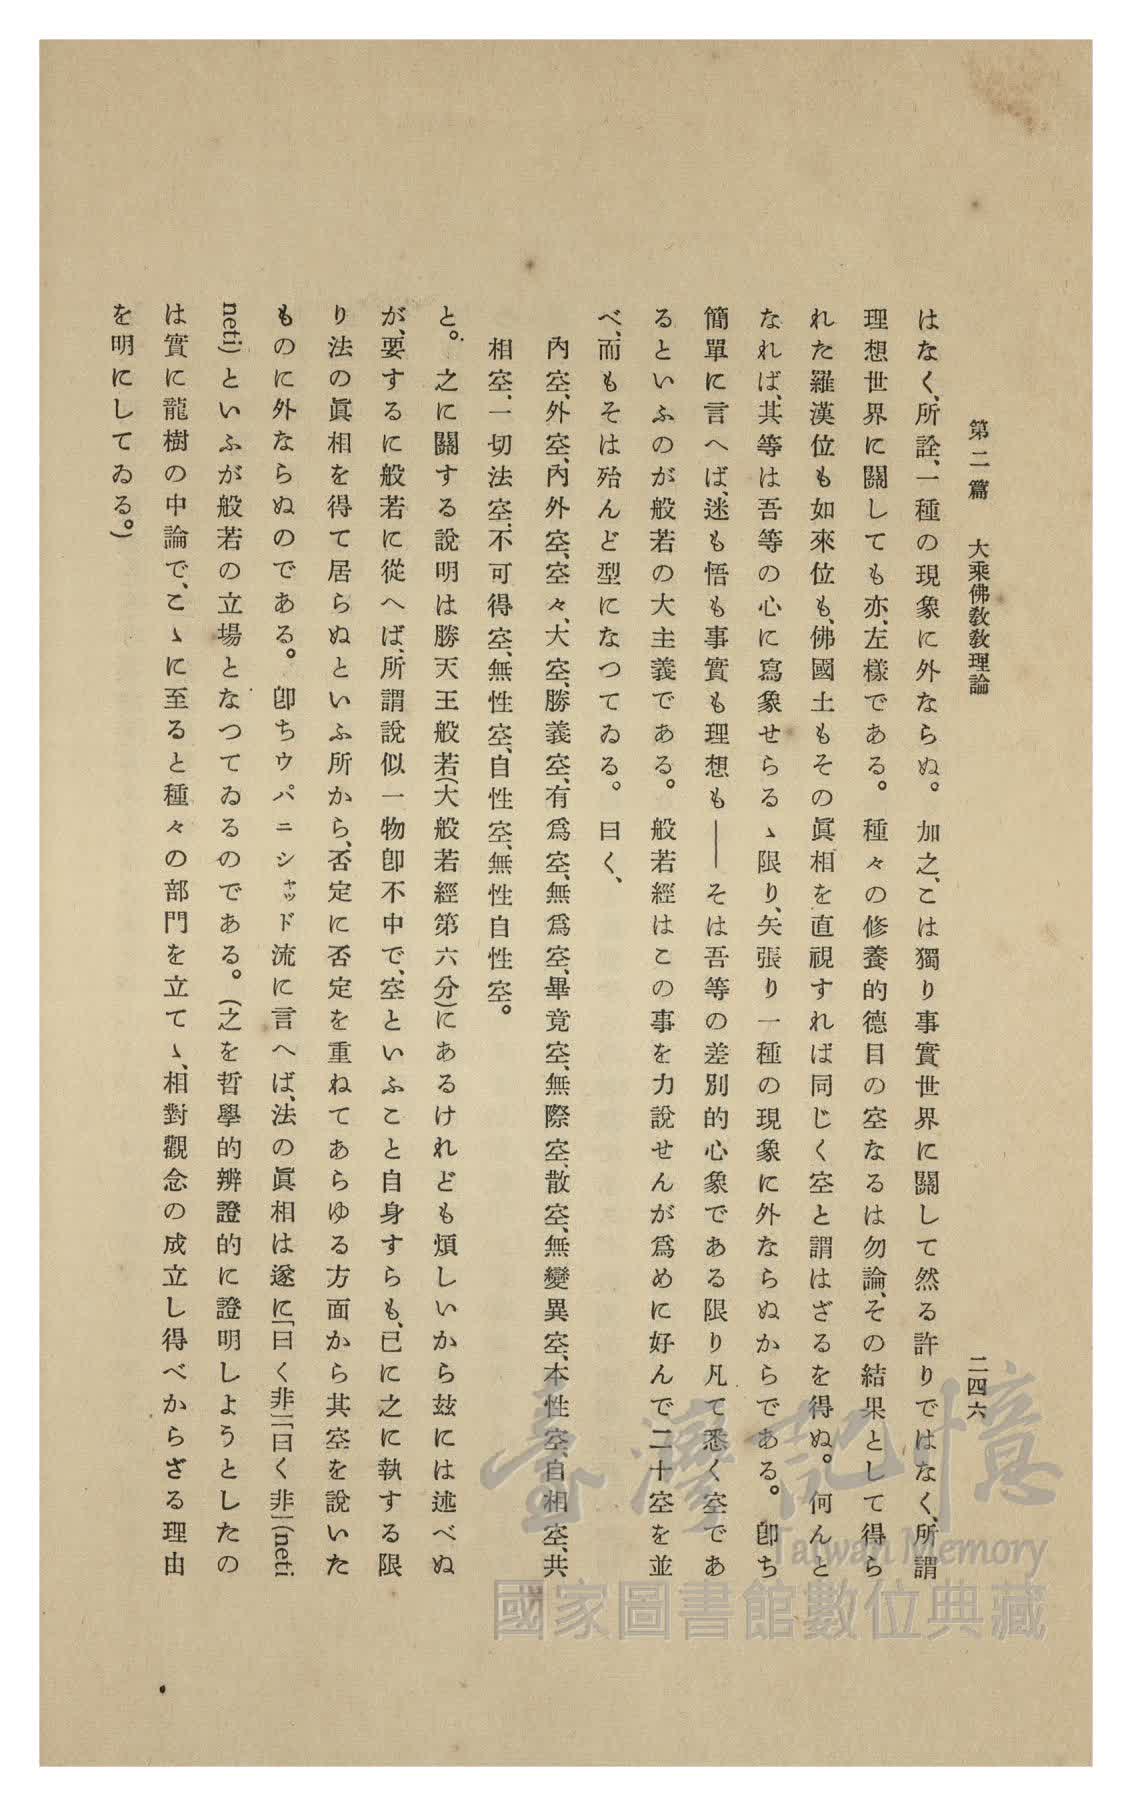 第二篇　大乘佛敎敎理論　二四六
はなく、所詮、一種の現象に外ならぬ。加之、こは獨り事實世界に關して然る許りではなく、所謂
理想世界に關しても亦、左樣である。種々の修養的德目の空なるは勿論、その結果として得ら
れた羅漢位も如來位も、佛國土もその眞相を直視すれば同じく空と謂はざるを得ぬ。何んと
なれば、其等は吾等の心に寫象せらるゝ限り、矢張り一種の現象に外ならぬからである。卽ち
簡單に言へば、迷も悟も事實も理想も――そは吾等の差別的心象である限り凡て悉く空であ
るといふのが般若の大主義である。般若經はこの事を力說せんが爲めに好んで二十空を並
べ、而もそは殆んど型になつてゐる。曰く、
內空、外空、內外空、空々、大空、勝義空、有爲空、無爲空、畢竟空、無際空、散空、無變異空、本性空、自相空、共
相空、一切法空、不可得空、無性空、自性空、無性自性空。
と。之に關する說明は勝天王般若(大般若經第六分)にあるけれども煩しいから玆には述べぬ
が、要するに般若に從へば、所謂說似一物卽不中で、空といふこと自身すらも、已に之に執する限
り法の眞相を得て居らぬといふ所から、否定に否定を重ねてあらゆる方面から其空を說いた
ものに外ならぬのである。卽ちウパニシャッド流に言へば、法の眞相は遂に「曰く非」「曰く非」(neti
neti)といふが般若の立場となつてゐるのである。(之を哲學的辨證的に證明しようとしたの
は實に龍樹の中論で、こゝに至ると種々の部門を立てゝ、相對觀念の成立し得べからざる理由
を明にしてゐる。)
臺灣記憶
Taiwan Memory
國家圖書館數位典藏